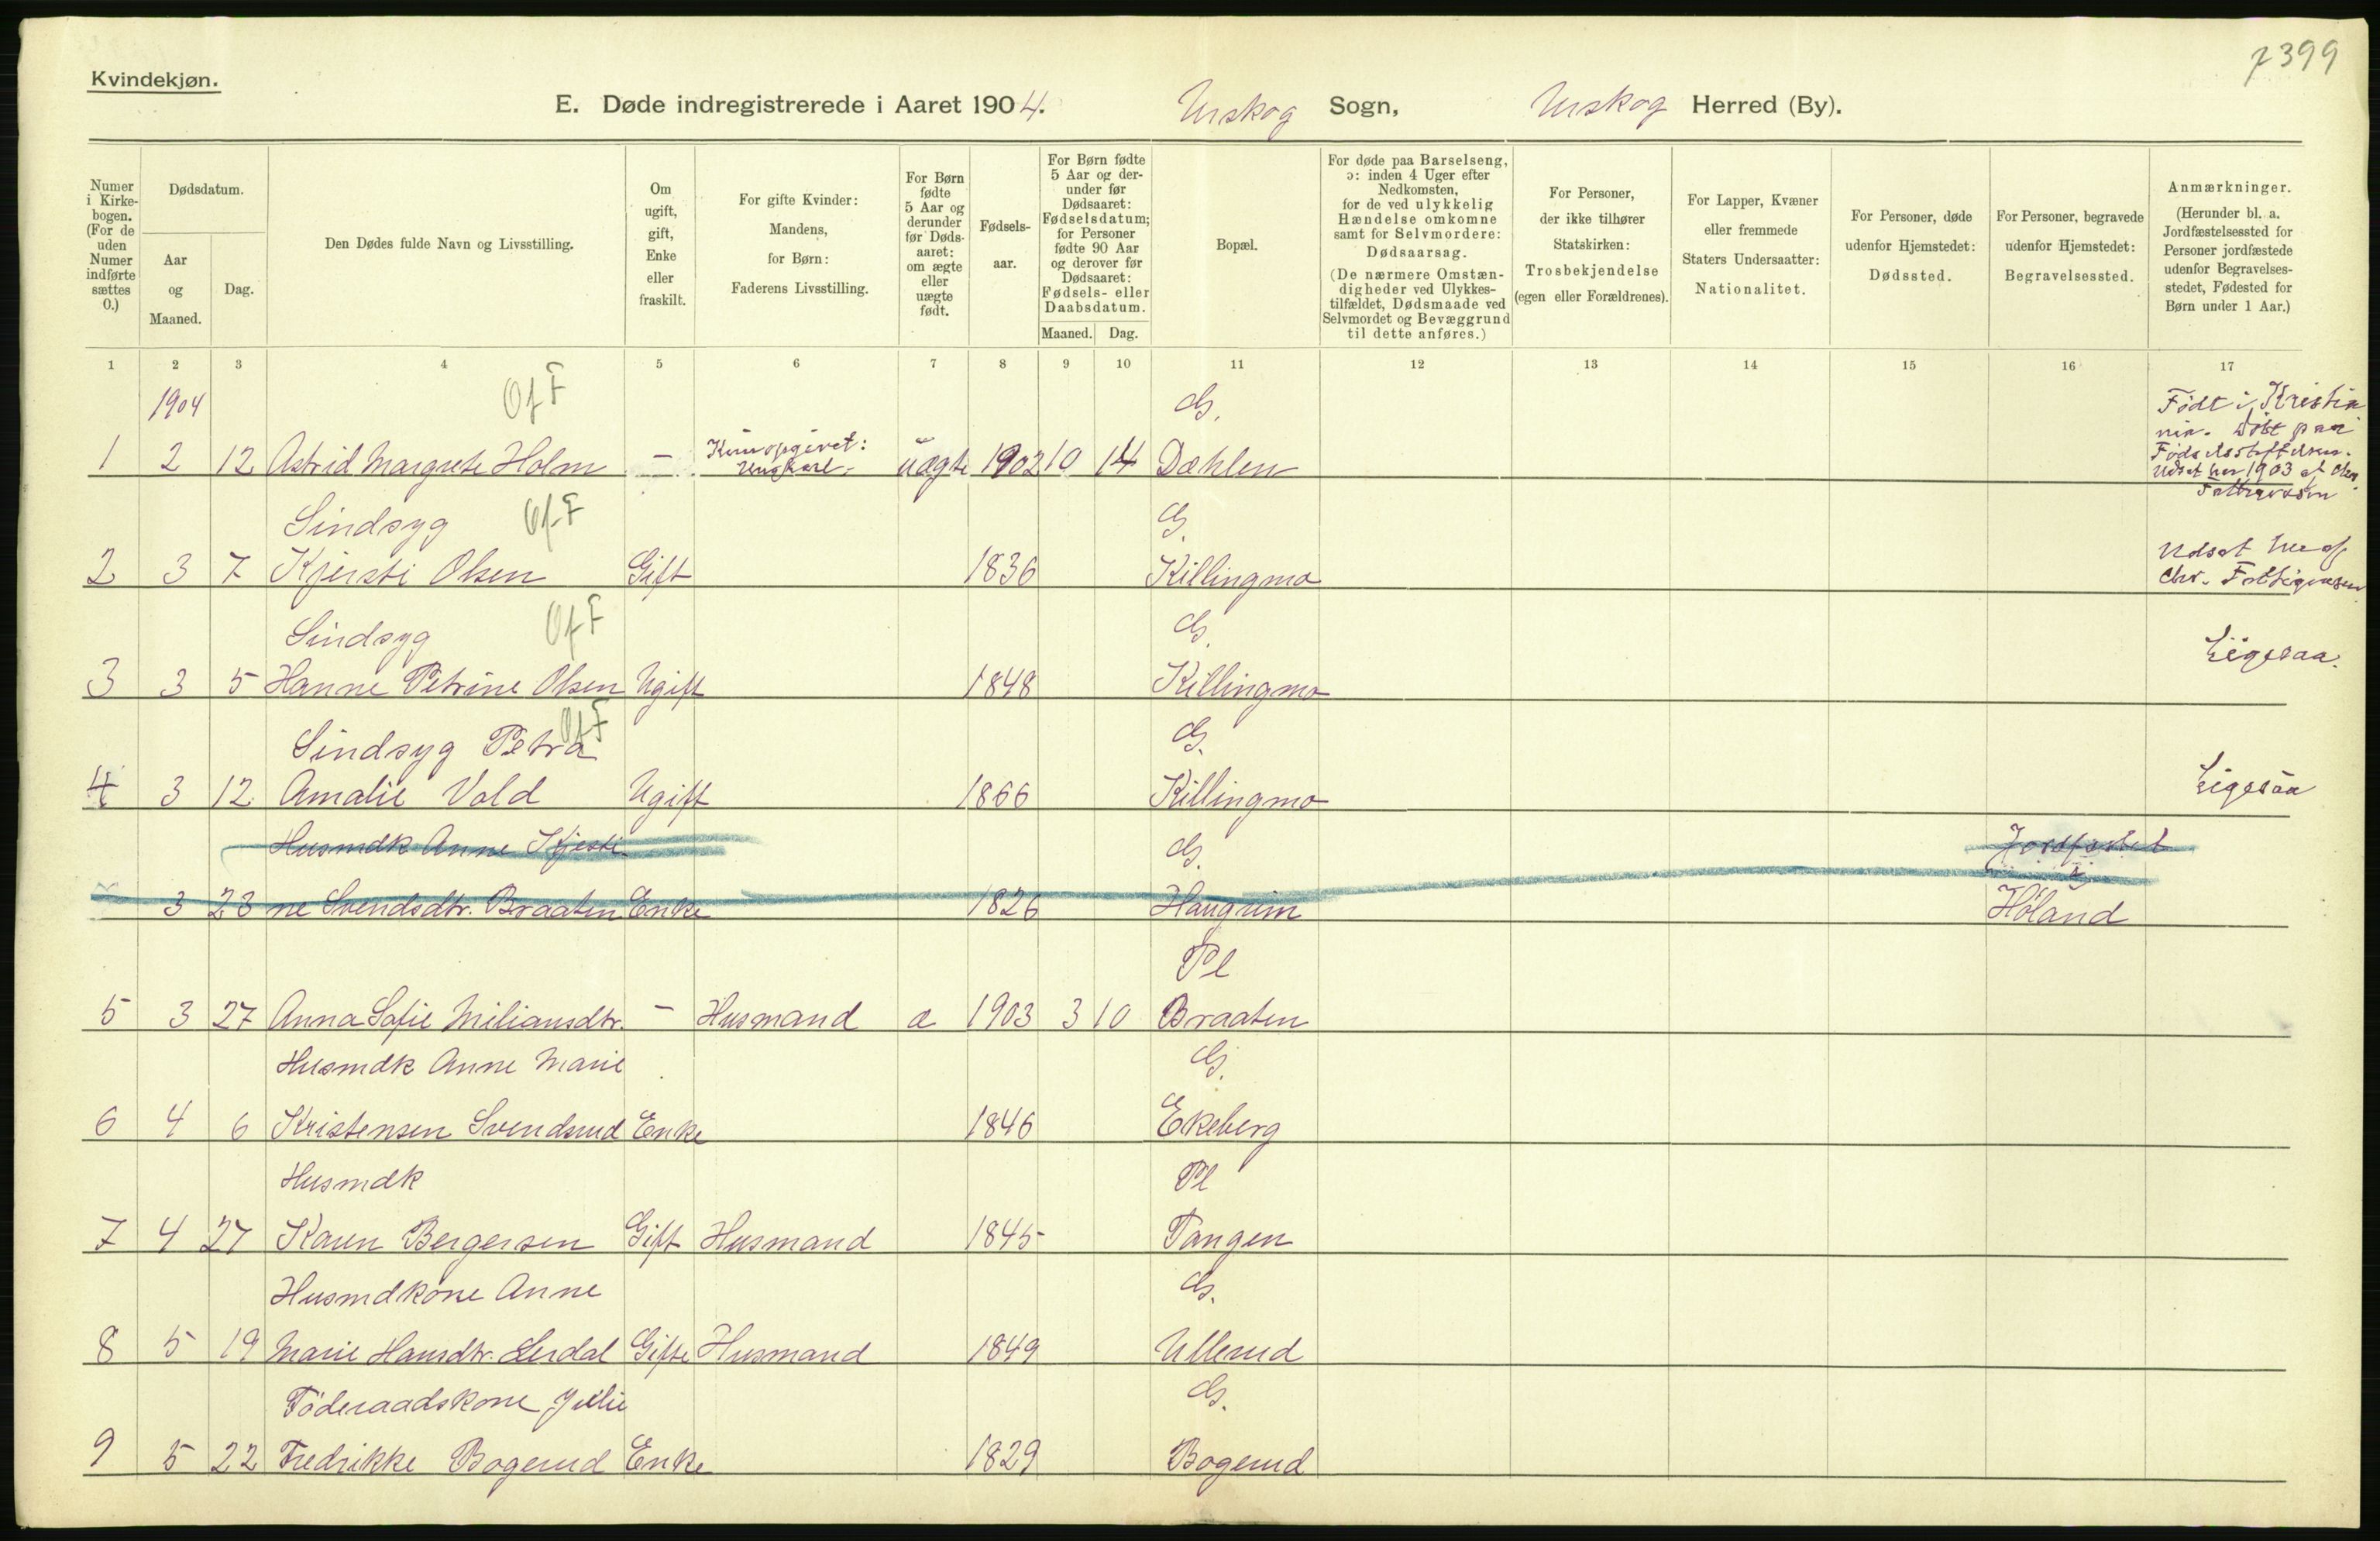 7399
Kvindekjøn.
E. Døde indregistrerede i Aaret 1904. Urskog Sogn, Urskog Herred (By).
Numer i Kirkebogen. (For de uden Numer indførte sættes 0.)
Dødsdatum.
Aar og Maaned.
Dag.
Den Dødes fulde Navn og Livsstilling.
Om ugift, gift, Enke eller fraskilt.
For gifte Kvinder: Mandens, for Børn: Faderens Livsstilling.
For Børn fødte 5 Aar og derunder før Dødsaaret: om ægte eller uægte født.
Fødselsaar.
For Børn fødte 5 Aar og derunder før Dødsaaret: Fødselsdatum; for Personer fødte 90 Aar og derover før Dødsaaret: Fødsels- eller Daabsdatum.
Maaned. Dag.
Bopæl.
For døde paa Barselseng, ɔ: inden 4 Uger efter Nedkomsten, for de ved ulykkelig Hændelse omkomne samt for Selvmordere: Dødsaarsag. (De nærmere Omstændigheder ved Ulykkestilfældet, Dødsmaade ved Selvmordet og Bevæggrund til dette anføres.)
For Personer, der ikke tilhører Statskirken: Trosbekjendelse (egen eller Forældrenes).
For Lapper, Kvæner eller fremmede Staters Undersaatter: Nationalitet.
For Personer, døde udenfor Hjemstedet: Dødssted.
For Personer, begravede udenfor Hjemstedet: Begravelsessted.
Anmærkninger. (Herunder bl. a. Jordfæstelsessted for Personer jordfæstede udenfor Begravelsesstedet, Fødested for Børn under 1 Aar.)
1 2 3 4 5 6 7 8 9 10 11 12 13 14 15 16 17
1904 Of F G. Født i Kristia
nia. Døbt paa
1 2 12 Astrid Margrete Holm – Kun opgivet: Ungkarl. uægte 1902 10 14 Dæhlen Fødselsstiftelsen.
Udsat her 1903 af Chr.
Fattigvæsen
Sindsyg Of F G.
2 3 7 Kjersti Olsen Gift 1836 Killingmo Udsat her af
Chr. Fattigvæsen
Sindsyg Of F G.
3 3 5 Hanne Petrine Olsen Ugift 1848 Killingmo Ligesaa.
Sindsyg Petra Of F G.
4 3 12 Amalie Vold Ugift 1866 Killingmo Ligesaa
Husmdk Anne Kjesti- G. Jordfæstet i
3 23 ne Svendsdtr. Braaten Enke 1826 Haugrim Høland
Pl
5 3 27 Anna Sofie Miliansdtr. – Husmand æ 1903 3 10 Braaten
Husmdk Anne Marie G.
6 4 6 Kristensen Svendsrud Enke 1846 Ekeberg
Husmdk Pl
7 4 27 Karen Bergersen Gift Husmand 1845 Tangen
Husmdkone Anne G.
8 5 19 Marie Hansdtr. Lerdal Gifte Husmand 1849 Ullerud
Föderaadskone Julie G.
9 5 22 Fredrikke Bogerud Enke 1829 Bogerud